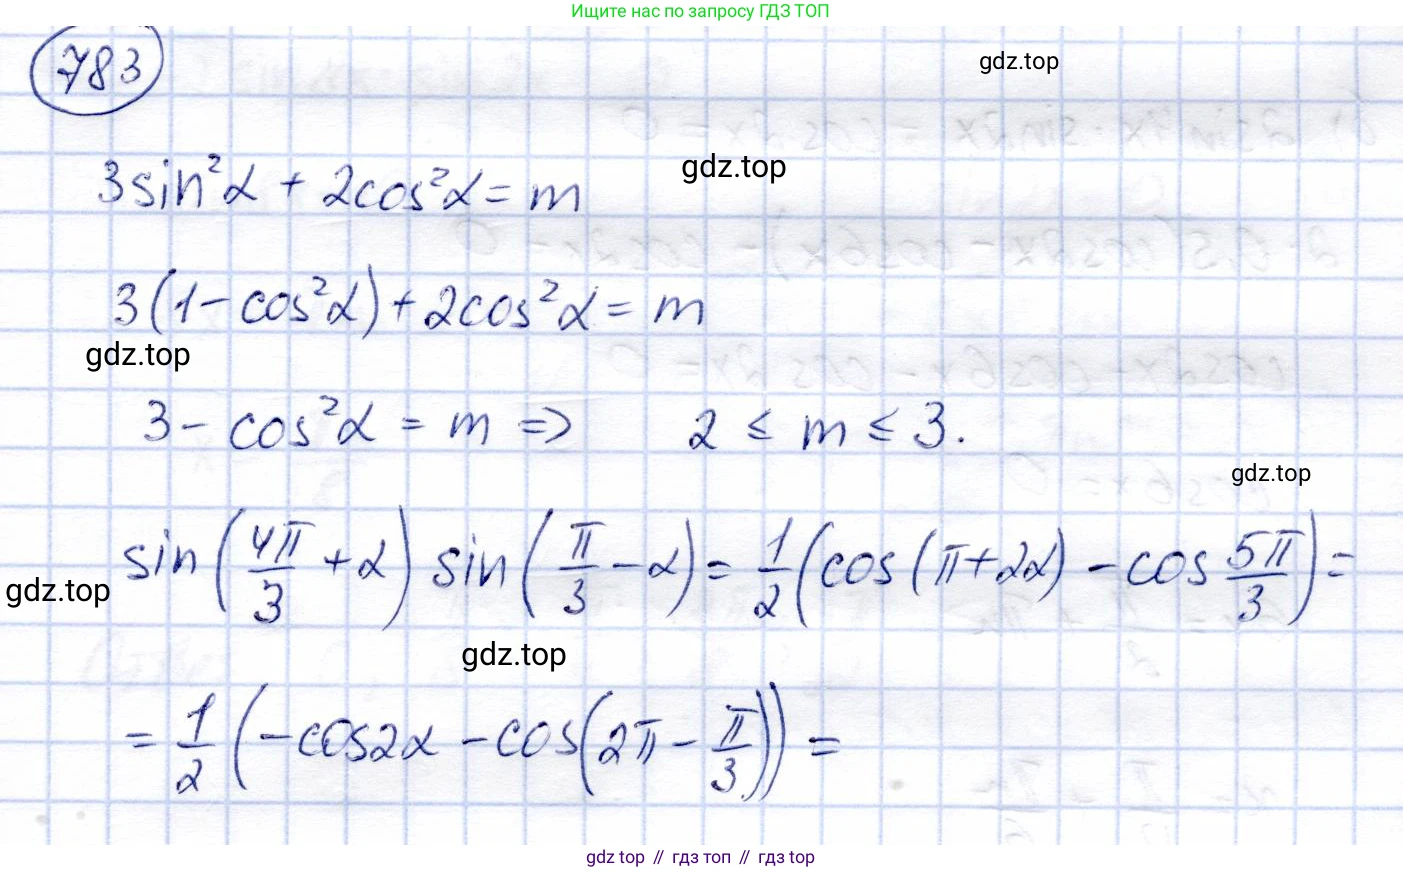 Ищите нас по запросу ГДЗ ТОП
783
gdz.top
3sin²α + 2cos²α = m
gdz.top
3(1 - cos²α) + 2cos²α = m
gdz.top
3 - cos²α = m => 2 ≤ m ≤ 3.
gdz.top
sin(4π/3 + α) sin(π/3 - α) = 1/2(cos(π+2α) - cos 5π/3) =
gdz.top
gdz.top
= 1/2(-cos2α - cos(2π - π/3)) =
gdz top // гдз топ // гдз top